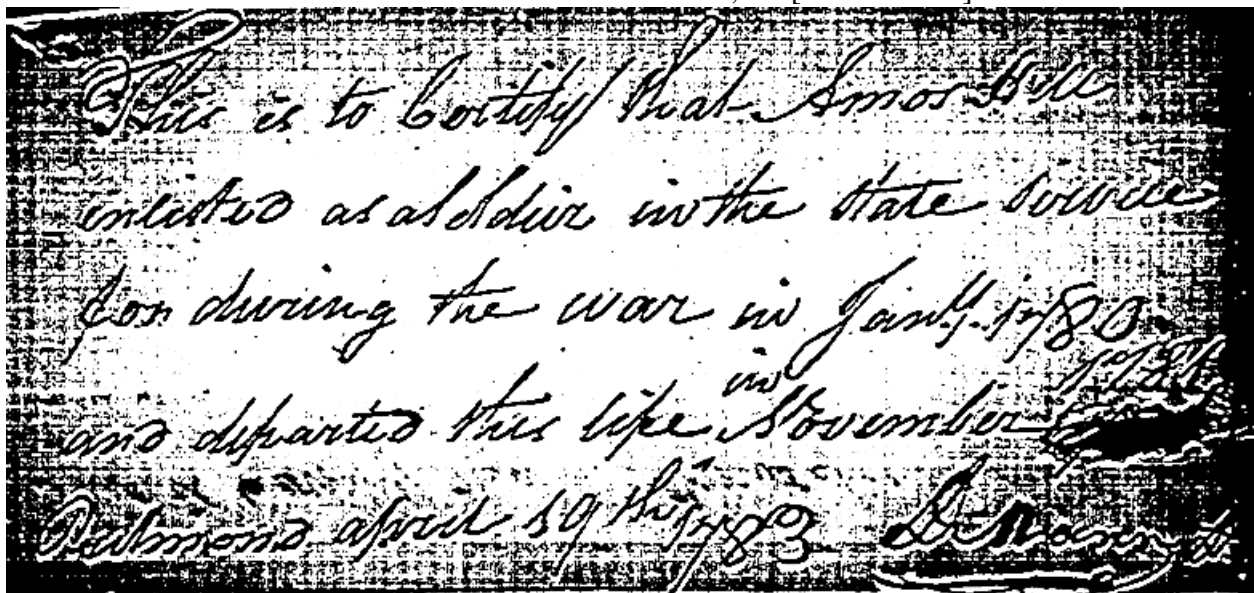 This is to Certify that Amos Hill
enlisted as a Soldier in the State Service
for during the war in Jany. 1780.
in 1781
and departed this life November
Richmond april 19th 1783 D. Mann